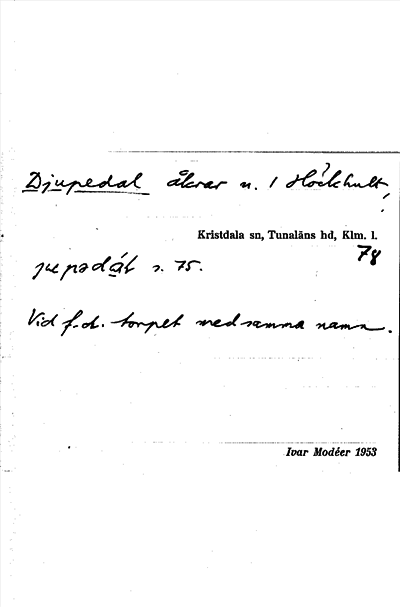 Djupedal åkrar n. 1 Höckhult,
Kristdala sn, Tunaläns hd, Klm. l.
78
jupədál s. 75.
Vid f.d. torpet med samma namn.
Ivar Modéer 1953